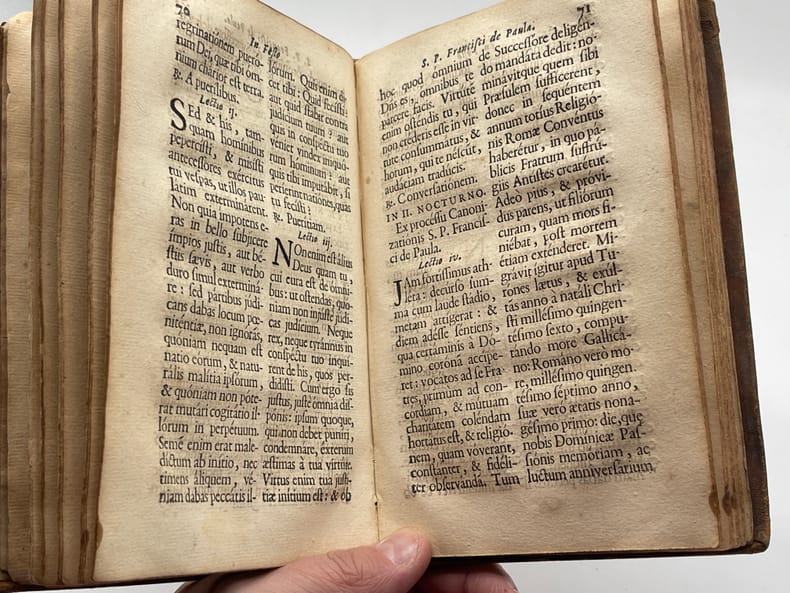 70
In Festo
regrinationem puero-
rum Dei, quæ tibi om-
nium charior est terra.
℟. A puerilibus.
Lectio ij.
SEd & his, tam-
quam hominibus
pepercisti, & misisti
antecessores exércitus
tui vespas, ut illos pau-
latim exterminarent.
Non quia impotens e-
ras in bello subjicere
ímpios justis, aut bé-
stiis sævis, aut verbo
duro simul exterminá-
re : sed pártibus júdi-
cans dabas locum pœ-
niténtiæ, non ignorás,
quóniam nequam est
natio eórum, & natu-
rális malitia ipsórum,
& quóniam non pote-
rat mutári cogitátio il-
lórum in perpétuum.
Semé enim erat male-
dictum ab initio, nec
timens áliquem, vé-
niam dabas peccátis il-
lórum. Quis enim di-
cet tibi : Quid fecisti?
aut quis stabit contra
judicium tuum ? aut
quis in conspéctu tuo
véniet vindex iniquó-
rum hominum ? aut
quis tibi imputábit, si
perierint nationes, quas
tu fecisti ?
℟. Pueritiam.
Lectio iij.
NOn enim est álius
Deus quam tu,
cui cura est de ómni-
bus : ut ostendas, quó-
niam non injústè júdi-
cas judícium. Neque
rex, neque tyránnus in
conspéctu tuo inqui-
rent de his, quos per-
didísti. Cum ergo sis
justus, justè ómnia dis-
pónis : ipsum quoque,
qui non debet puníri,
condemnáre, éxterum
æstimas à tua virtúte.
Virtus enim tua justí-
tiæ inítium est : & ob
71
S. P. Francisci de Paula.
hoc quod ómnium
Dñs es, ómnibus te
párcere facis. Virtúte
enim osténdis tu, qui
non créderis esse in vir-
túte consummátus, &
horum, qui te nésciút,
audáciam tradúcis.
℟. Conversatiónem.
IN II. NOCTURNO.
Ex procéssu Canoni-
zatiónis S. P. Francís-
ci de Paula.
Lectio iv.
JAm fortissimus ath-
léta : decurso sum-
ma cum laude stádio,
metam attigerat : &
diem adésse séntiens,
qua certáminis à Dó-
mino corona acípe-
ret : vocátos ad se Fra-
tres, primum ad con-
córdiam, & mútuam
charitátem coléndam
hortátus est, & religió-
nem, quam vóverant,
constánter, & fidéli-
ter observándā. Tum
de Successóre deligén-
do mandáta dedit : no-
minavítque quem sibi
Præsulem sufficerent,
donec in sequéntem
annum totius Religió-
nis Romæ Convéntus
haberétur, in quo pú-
blicis Fratrum suffrá-
giis Antístes crearétur.
Adeò pius, & próvi-
dus parens, ut filiórum
curam, quam mors fi-
niébat, post mortem
étiam exténderet. Mi-
grávit ígitur apud Tú-
rones lætus, & exúl-
tãs anno à natáli Chri-
sti millésimo quingen-
tésimo sexto, compu-
tándo more Gallicá-
no : Románo vero mo-
re, millésimo quingen-
tésimo séptimo anno,
suæ verò ætátis nona-
gésimo primo : die, quę
nobis Domínicæ Pas-
siónis memóriam, ac
luctum anniversárium